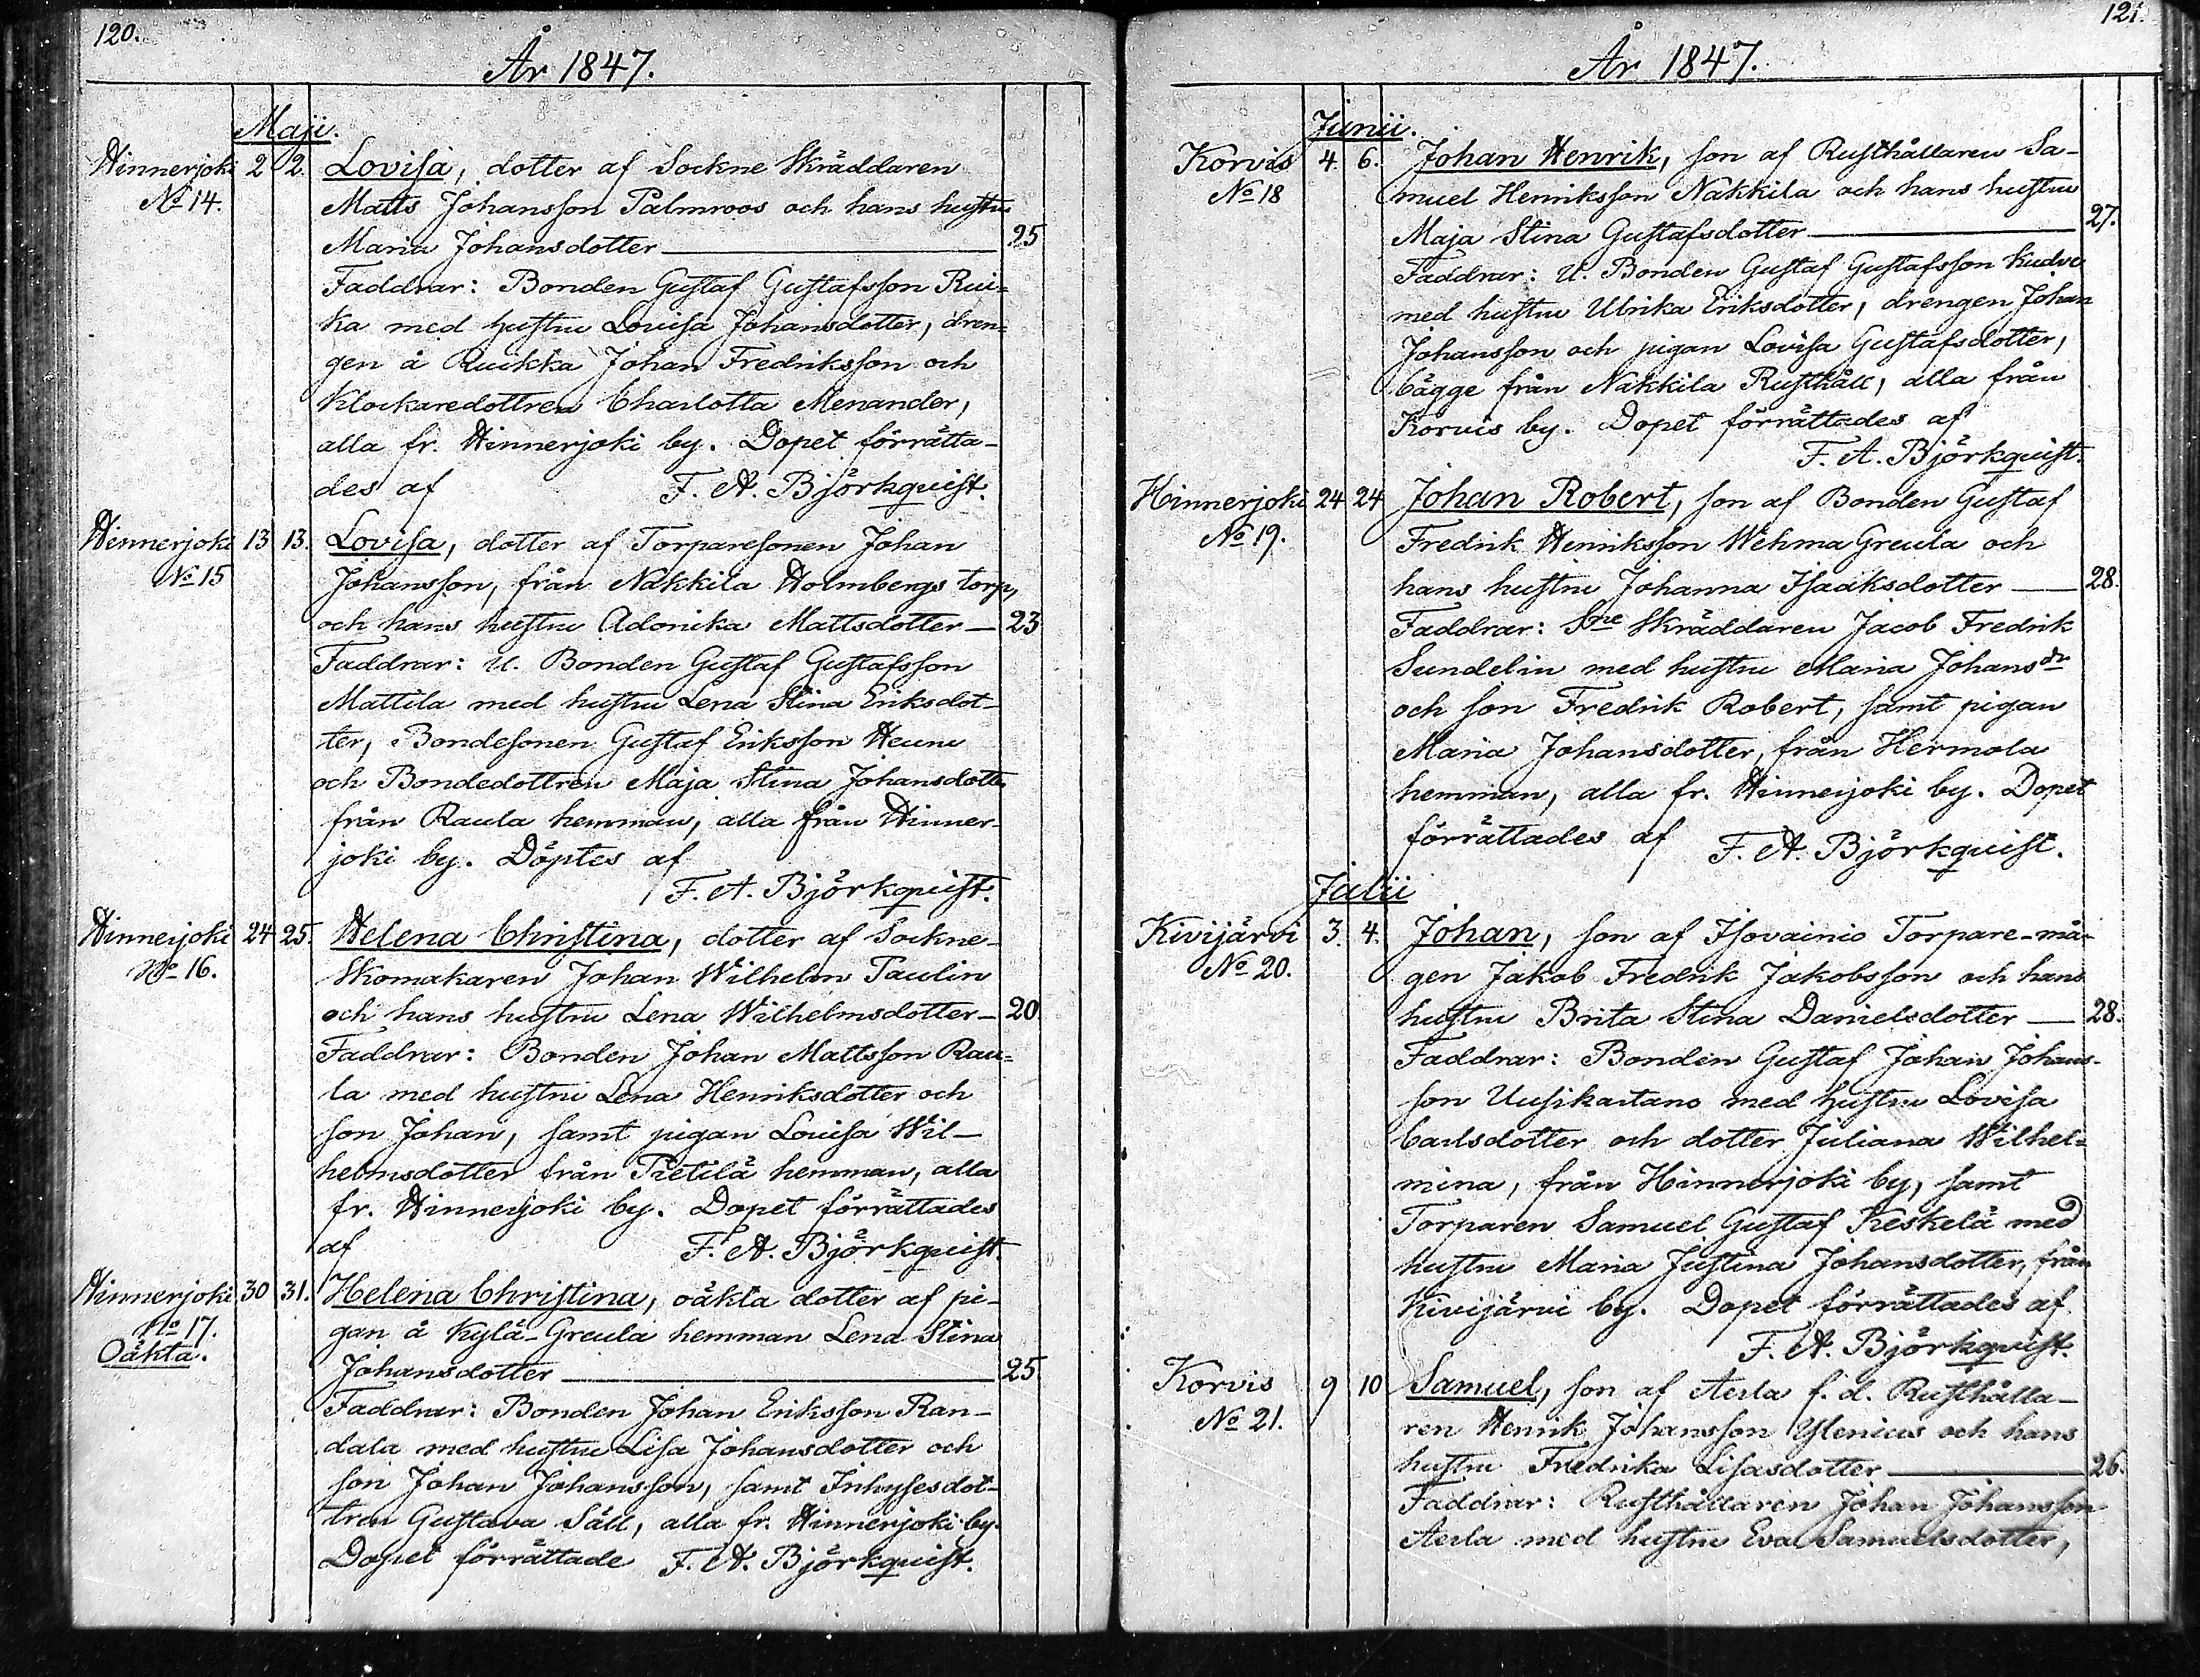 120.
År 1847.
Maji.
Hinnerjoki 2 2. Lovisa, dotter af Sockne Skräddaren
No 14. Matts Johansson Palmroos och hans hustru
Maria Johansdotter 25
Faddrar: Bonden Gustaf Gustafsson Rui=
ka med hustru Lovisa Johansdotter, dren=
gen å Ruikka Johan Fredriksson och
Klockaredottren Charlotta Menander,
alla fr. Hinnerjoki by. Dopet förrätta-
des af F. A. Björkquist.
Hinnerjoki 13 13. Lovisa, dotter af Torparesonen Johan
No 15 Johansson, från Nakkila Holmbergs torp,
och hans hustru Adonika Mattsdotter — 23
Faddrar: U. Bonden Gustaf Gustafsson
Mattila med hustru Lena Stina Eriksdot-
ter, Bondesonen Gustaf Eriksson Heunu
och Bondedottren Maja Stina Johansdotter
från Raula hemman, alla från Hinner-
joki by. Döptes af
F. A. Björkquist.
Hinnerjoki 24 25. Helena Christina, dotter af Sockne-
No 16. Skomakaren Johan Wilhelm Paulin
och hans hustru Lena Wilhelmsdotter — 20
Faddrar: Bonden Johan Mattsson Rau=
la med hustru Lena Henriksdotter och
son Johan, samt pigan Lovisa Wil-
helmsdotter från Pietilä hemman, alla
fr. Hinnerjoki by. Dopet förrättades
af F. A. Björkquist.
Hinnerjoki 30 31. Helena Christina, oäkta dotter af pi-
No 17. gan å Kylä-Greula hemman Lena Stina
Oäkta. Johansdotter 25
Faddrar: Bonden Johan Eriksson Ran-
dala med hustru Lisa Johansdotter och
son Johan Johansson, samt Inhysesdot-
tren Gustava Säll, alla fr. Hinnerjoki by.
Dopet förrättade F. A. Björkquist.
121.
År 1847.
Junii.
Korvis 4. 6. Johan Henrik, son af Rusthållaren Sa-
No 18 muel Henriksson Nakkila och hans hustru
Maja Stina Gustafsdotter 27.
Faddrar: U. Bonden Gustaf Gustafsson
med hustru Ulrika Eriksdotter, drengen Johan
Johansson och pigan Lovisa Gustafsdotter,
bägge från Nakkila Rusthåll, alla från
Korvis by. Dopet förrättades af
F. A. Björkquist.
Hinnerjoki 24 24 Johan Robert, son af Bonden Gustaf
No 19. Fredrik Henriksson Wehma Greula och
hans hustru Johanna Isaaksdotter — 28.
Faddrar: Sne Skräddaren Jacob Fredrik
Sundelin med hustru Maria Johansdr
och son Fredrik Robert, samt pigan
Maria Johansdotter, från Hermola
hemman, alla fr. Hinnerjoki by. Dopet
förrättades af F. A. Björkquist.
Julii
Kivijärvi 3. 4. Johan, son af Isovainio Torpare-må-
No 20. gen Jakob Fredrik Jakobsson och hans
hustru Brita Stina Danielsdotter — 28.
Faddrar: Bonden Gustaf Johan Johans-
son Uusikartano med hustru Lovisa
Carlsdotter och dotter Juliana Wilhel=
mina, från Hinnerjoki by, samt
Torparen Samuel Gustaf Keskelä med
hustru Maria Justina Johansdotter, från
Kivijärvi by. Dopet förrättades af
F. A. Björkquist.
Korvis 9 10 Samuel, son af Aerla f. d. Rusthålla-
No 21. ren Henrik Johansson Ylenius och hans
hustru Fredrika Lisasdotter 26.
Faddrar: Rusthållaren Johan Johansson
Aerla med hustru Eva Samuelsdotter,